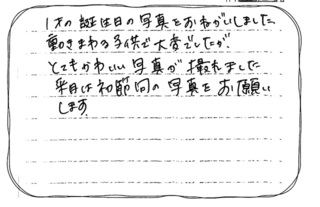 1才の誕生日の写真をおねがいしました
動きまわる子供で大変でしたが、
とてもかわいい写真が撮れました
来月は初節句の写真をお願い
します